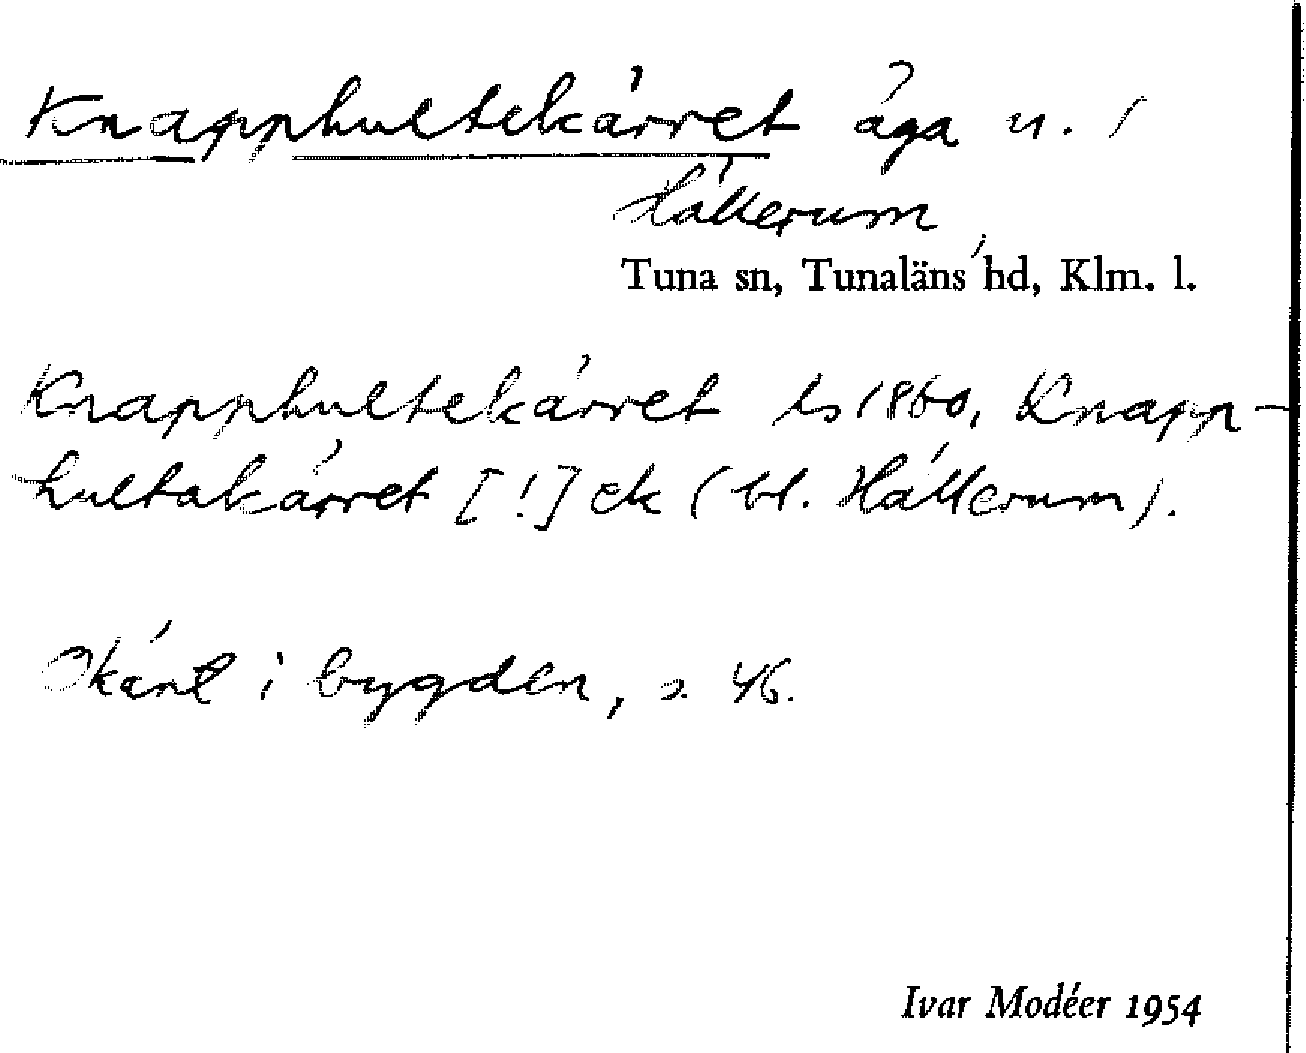 Knapphultekärret äga u. /
Hällerum
Tuna sn, Tunaläns hd, Klm. l.
Knapphultekärret ls 1860, Knapp-
hultakärret [!] ek (bl. Hällerum).
Okänt i bygden, s. 46.
Ivar Modéer 1954